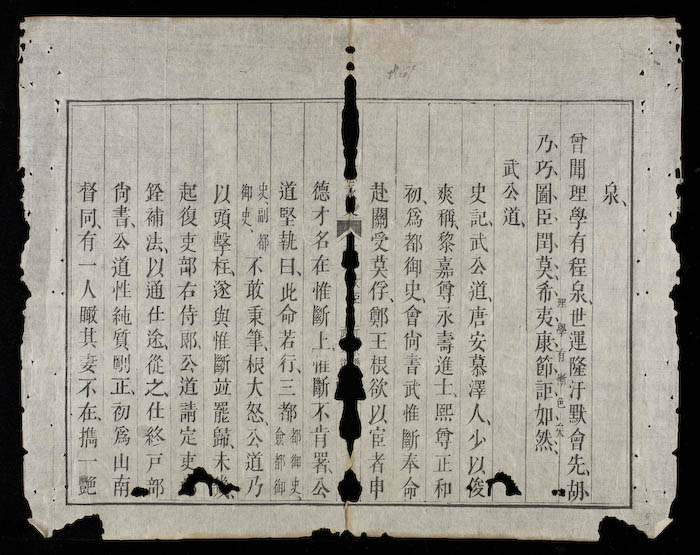 泉、
曾聞理學有程泉、世運隆汙默會先、胡
乃巧圖臣閏莫、希夷康節詎如然、
理學有
武公道、
史記武公道、唐安慕澤人、少以俊
爽稱、黎嘉尊永壽進士、熙尊正和
初、爲都御史、會尙書武惟斷奉命
赴關受莫俘、鄭王根欲以宦者申
德才名在惟斷上、惟斷不肯署、公
道堅執曰、此命若行、三都都御史、僉都御
史、副都御史、不敢秉筆、根大怒、公道乃
以頭擊柱、遂與惟斷竝罷歸、未幾
起復吏部右侍郞、公道請定吏
銓補法、以通仕途、從之、仕終戸部
尙書、公道性純質剛正、初爲山南
督同、有一人瞰其妻不在、擕一艷